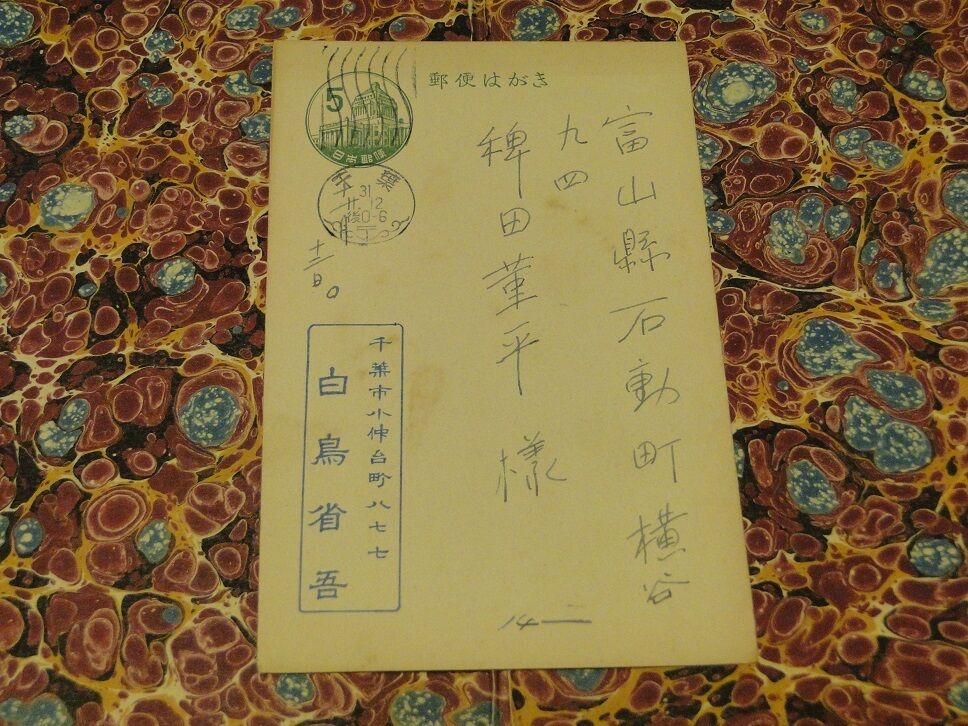 郵便はがき
富山縣石動町横谷
九四
稗田菫平様
5
日本郵便
千葉
31.12
後0-6
十二日
千葉市小仲台町八七七
白鳥省吾